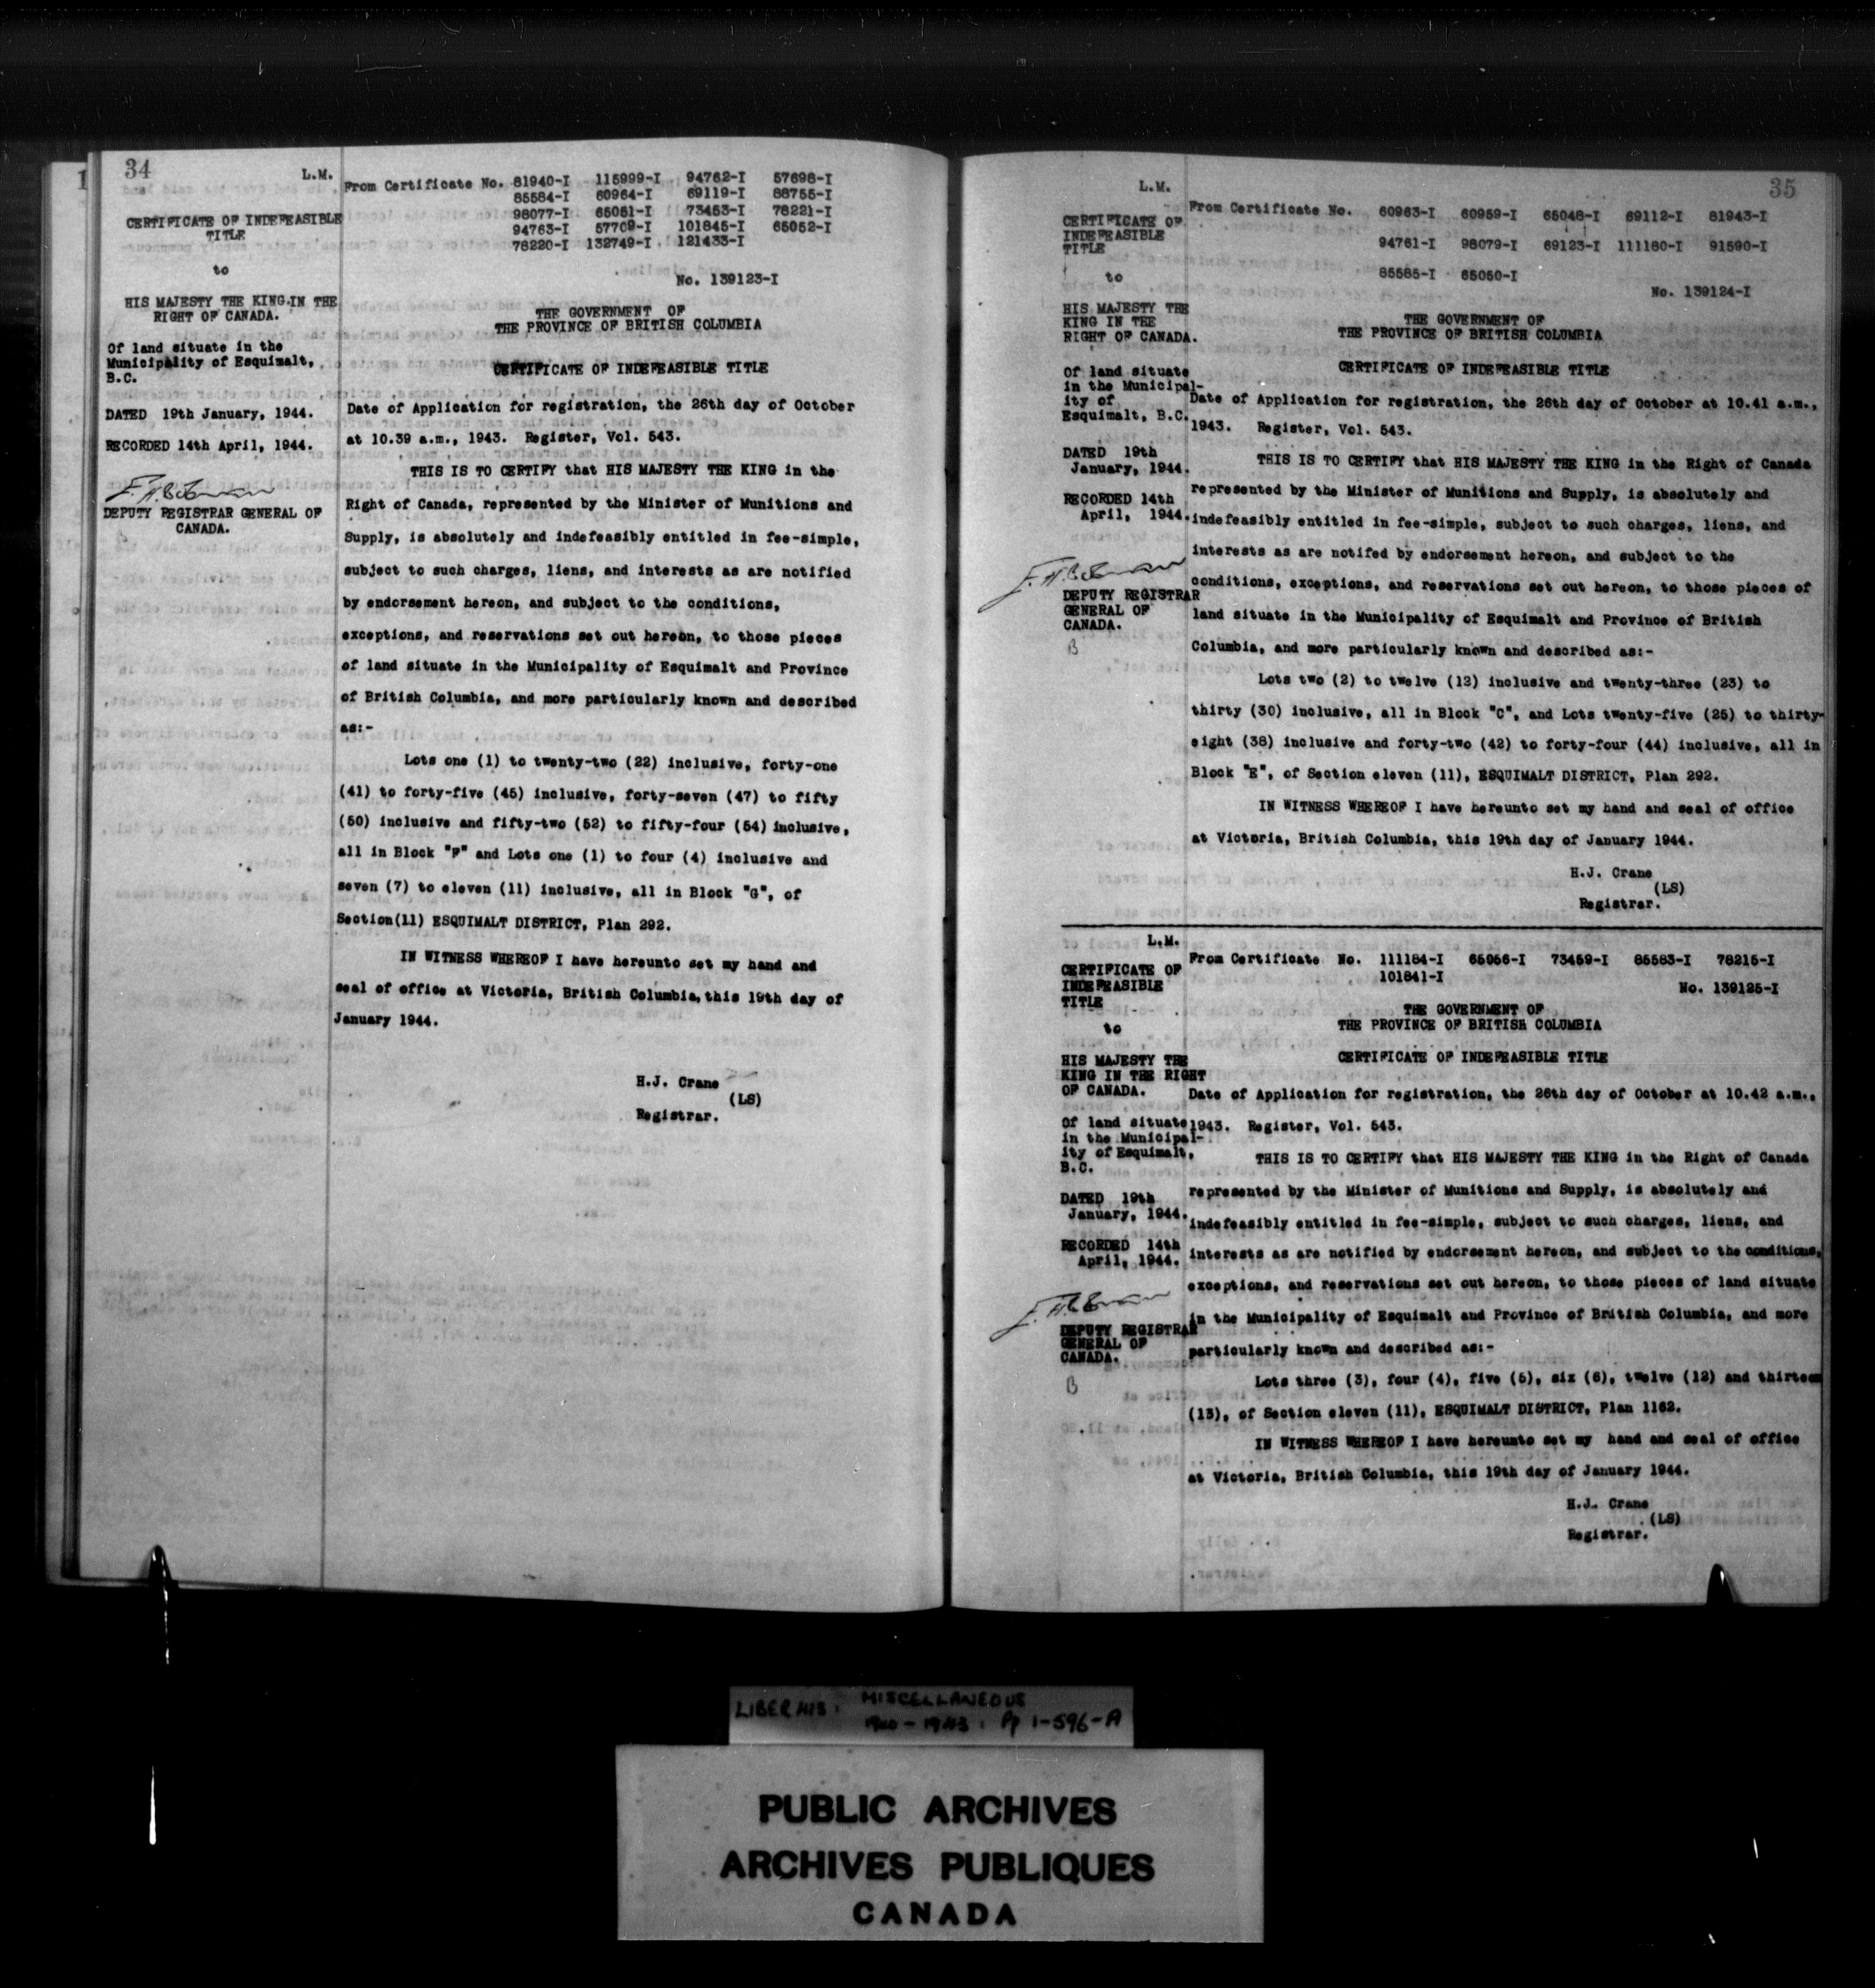 34
L.M.
CERTIFICATE OF INDEFEASIBLE
TITLE
to
HIS MAJESTY THE KING IN THE
RIGHT OF CANADA.
Of land situate in the
Municipality of Esquimalt,
B.C.
DATED 19th January, 1944.
RECORDED 14th April, 1944.
DEPUTY REGISTRAR GENERAL OF
CANADA.
From Certificate No. 81940-I 115999-I 94762-I 57698-I
85584-I 60964-I 69119-I 88755-I
98077-I 65051-I 73453-I 78221-I
94763-I 57709-I 101845-I 65052-I
78220-I 132749-I 121433-I
No. 139123-I
THE GOVERNMENT OF
THE PROVINCE OF BRITISH COLUMBIA
CERTIFICATE OF INDEFEASIBLE TITLE
Date of Application for registration, the 26th day of October
at 10.39 a.m., 1943. Register, Vol. 543.
THIS IS TO CERTIFY that HIS MAJESTY THE KING in the
Right of Canada, represented by the Minister of Munitions and
Supply, is absolutely and indefeasibly entitled in fee-simple,
subject to such charges, liens, and interests as are notified
by endorsement hereon, and subject to the conditions,
exceptions, and reservations set out hereon, to those pieces
of land situate in the Municipality of Esquimalt and Province
of British Columbia, and more particularly known and described
as:-
Lots one (1) to twenty-two (22) inclusive, forty-one
(41) to forty-five (45) inclusive, forty-seven (47) to fifty
(50) inclusive and fifty-two (52) to fifty-four (54) inclusive,
all in Block "F" and Lots one (1) to four (4) inclusive and
seven (7) to eleven (11) inclusive, all in Block "G", of
Section(11) ESQUIMALT DISTRICT, Plan 292.
IN WITNESS WHEREOF I have hereunto set my hand and
seal of office at Victoria, British Columbia, this 19th day of
January 1944.
H.J. Crane
(LS)
Registrar.
35
L.M.
CERTIFICATE OF
INDEFEASIBLE
TITLE
to
HIS MAJESTY THE
KING IN THE
RIGHT OF CANADA.
Of land situate
in the Municipal-
ity of
Esquimalt, B.C.
DATED 19th
January, 1944.
RECORDED 14th
April, 1944.
DEPUTY REGISTRAR
GENERAL OF
CANADA.
B
From Certificate No. 60963-I 60959-I 65048-I 69112-I 81943-I
94761-I 98079-I 69123-I 111180-I 91590-I
85585-I 65050-I
No. 139124-I
THE GOVERNMENT OF
THE PROVINCE OF BRITISH COLUMBIA
CERTIFICATE OF INDEFEASIBLE TITLE
Date of Application for registration, the 26th day of October at 10.41 a.m.,
1943. Register, Vol. 543.
THIS IS TO CERTIFY that HIS MAJESTY THE KING in the Right of Canada
represented by the Minister of Munitions and Supply, is absolutely and
indefeasibly entitled in fee-simple, subject to such charges, liens, and
interests as are notifed by endorsement hereon, and subject to the
conditions, exceptions, and reservations set out hereon, to those pieces of
land situate in the Municipality of Esquimalt and Province of British
Columbia, and more particularly known and described as:-
Lots two (2) to twelve (12) inclusive and twenty-three (23) to
thirty (30) inclusive, all in Block "C", and Lots twenty-five (25) to thirty-
eight (38) inclusive and forty-two (42) to forty-four (44) inclusive, all in
Block "E", of Section eleven (11), ESQUIMALT DISTRICT, Plan 292.
IN WITNESS WHEREOF I have hereunto set my hand and seal of office
at Victoria, British Columbia, this 19th day of January 1944.
H.J. Crane
(LS)
Registrar.
L.M.
CERTIFICATE OF
INDEFEASIBLE
TITLE
to
HIS MAJESTY THE
KING IN THE RIGHT
OF CANADA.
Of land situate
in the Municipal-
ity of Esquimalt,
B.C.
DATED 19th
January, 1944.
RECORDED 14th
April, 1944.
DEPUTY REGISTRAR
GENERAL OF
CANADA.
B
From Certificate No. 111184-I 65056-I 73459-I 85583-I 78215-I
101841-I
No. 139125-I
THE GOVERNMENT OF
THE PROVINCE OF BRITISH COLUMBIA
CERTIFICATE OF INDEFEASIBLE TITLE
Date of Application for registration, the 26th day of October at 10.42 a.m.,
1943. Register, Vol. 543.
THIS IS TO CERTIFY that HIS MAJESTY THE KING in the Right of Canada
represented by the Minister of Munitions and Supply, is absolutely and
indefeasibly entitled in fee-simple, subject to such charges, liens, and
interests as are notified by endorsement hereon, and subject to the conditions,
exceptions, and reservations set out hereon, to those pieces of land situate
in the Municipality of Esquimalt and Province of British Columbia, and more
particularly known and described as:-
Lots three (3), four (4), five (5), six (6), twelve (12) and thirteen
(13), of Section eleven (11), ESQUIMALT DISTRICT, Plan 1162.
IN WITNESS WHEREOF I have hereunto set my hand and seal of office
at Victoria, British Columbia, this 19th day of January 1944.
H.J. Crane
(LS)
Registrar.
LIBER 413: MISCELLANEOUS
1940-1943: Pp 1-596-A
PUBLIC ARCHIVES
ARCHIVES PUBLIQUES
CANADA